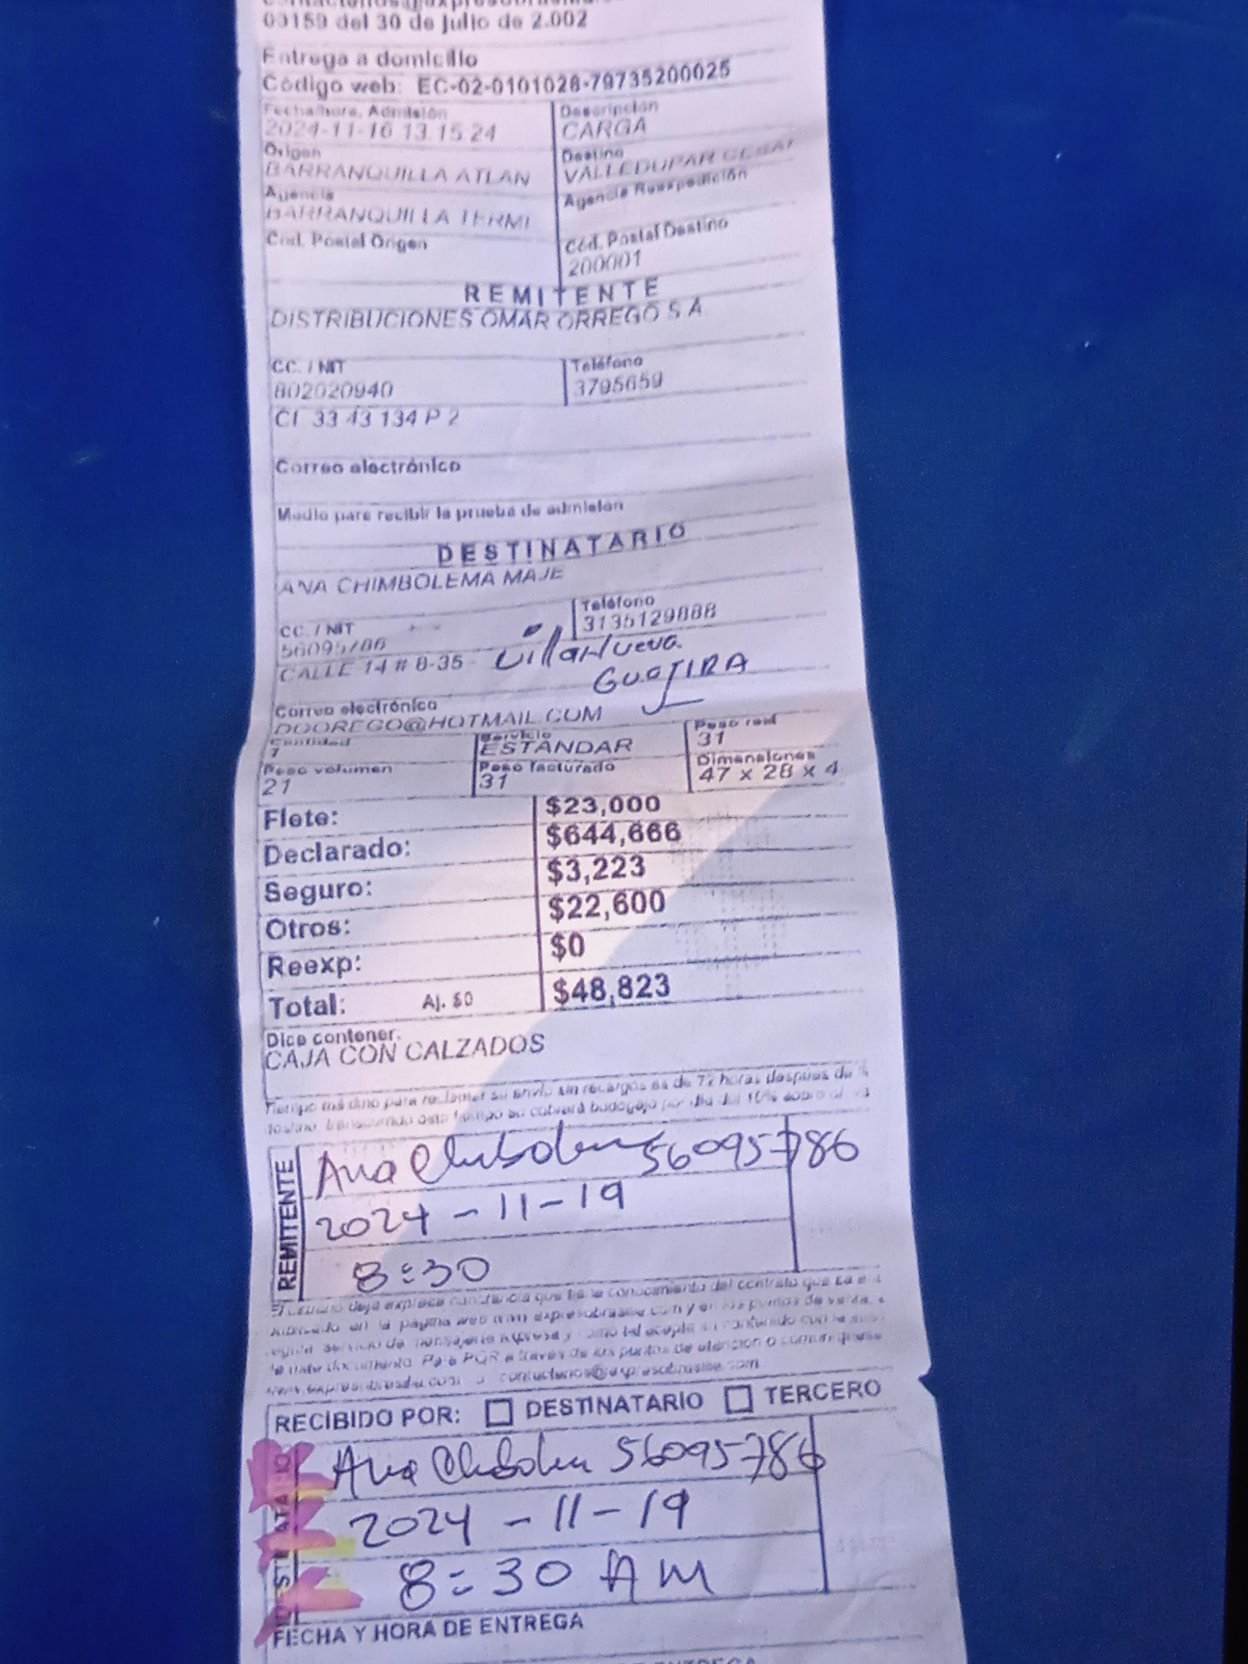 03159 del 30 de julio de 2.002
Entrega a domicilio
Código web: EC-02-0101028-79735200025
Fecha/hora, Admisión Descripción
2024-11-16 13.15.24 CARGA
Origen Destino
BARRANQUILLA ATLAN VALLEDUPAR CESAR
Agencia Agencia Reexpedición
BARRANQUILLA TERMI
Cód. Postal Origen Cód. Postal Destino
200001
REMITENTE
DISTRIBUCIONES OMAR ORREGO S A
CC. / NIT Teléfono
802020940 3795659
CL 33 43 134 P 2
Correo electrónico
Medio para recibir la prueba de admisión
DESTINATARIO
ANA CHIMBOLEMA MAJE
CC. / NIT Teléfono
56095786 3135129888
CALLE 14 # 8-35 - VillaNueva.
GUAJIRA
Correo electrónico
DOOREGO@HOTMAIL.COM
Cantidad Servicio Peso real
1 ESTANDAR 31
Peso volumen Peso facturado Dimensiones
21 31 47 x 28 x 4
Flete: $23,000
Declarado: $644,666
Seguro: $3,223
Otros: $22,600
Reexp: $0
Total: Aj. $0 $48,823
Dice contener:
CAJA CON CALZADOS
Tiempo máximo para reclamar su envío sin recargos es de 72 horas después de
REMITENTE
Ana Chibolem 56095786
2024-11-19
8:30
El usuario deja expresa constancia que tiene conocimiento del contrato que se
publicado en la página web www.expresobrasilia.com y en los puntos de venta,
regula servicio de mensajería expresa y como tal acepta su contenido con la
de este documento. Para PQR a través de los puntos de atención o
www.expresobrasilia.com o contactenos@expresobrasilia.com
RECIBIDO POR: DESTINATARIO TERCERO
DESTINATARIO
Ana Chibolem 56095786
2024-11-19
8:30 AM
FECHA Y HORA DE ENTREGA